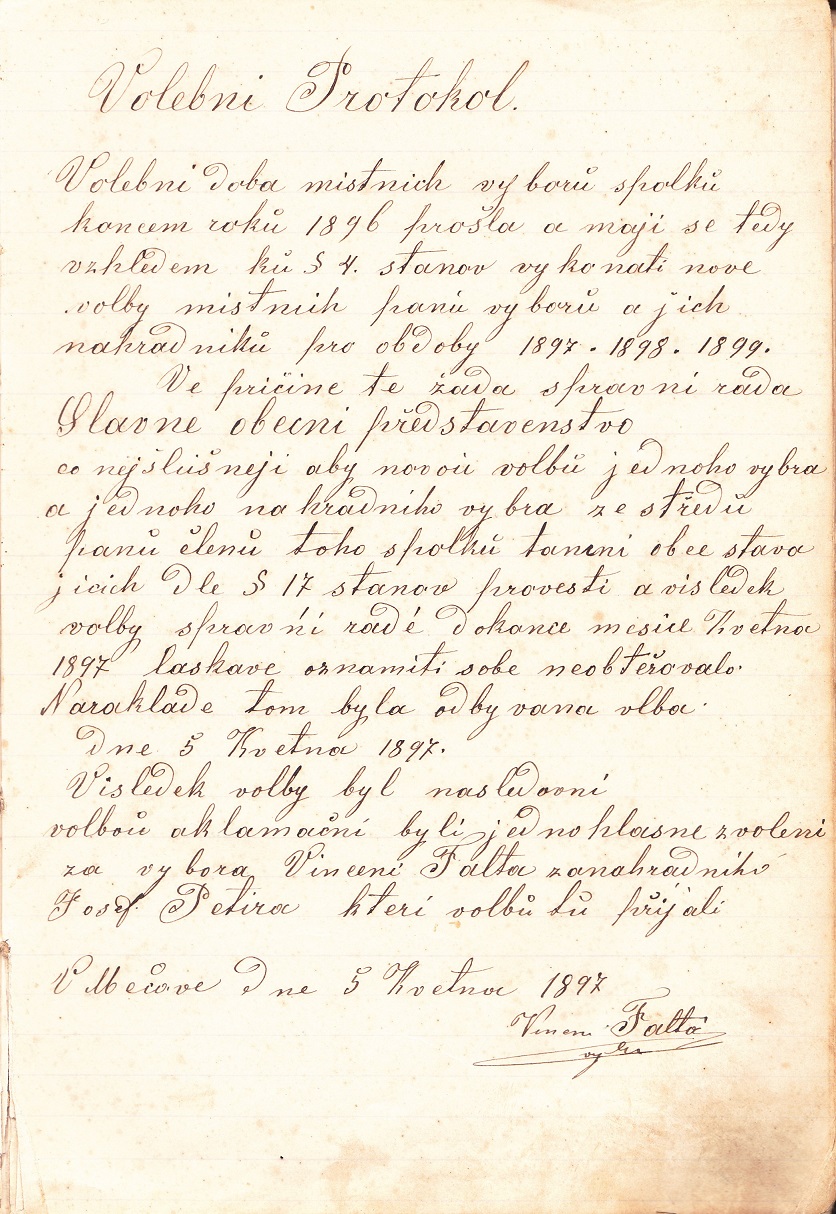 Volebni Protokol.
Volebni doba mistnich vyborů spolků
koncem roků 1896 prošla a maji se tedy
vzhledem ků § 4. stanov vykonati nove
volby mistnich panů vyborů a jich
nahradniků pro obdoby 1897. 1898. 1899.
Ve pričine te žada spravni rada
Slavne obecni představenstvo
co nejslušneji aby novoů volbů jednoho vybra
a jednoho nahradniho vybra ze středů
panů členů toho spolků tamni obce stava
jicich dle § 17 stanov provesti a visledek
volby spravni radě dokance mesice Kvetna
1897 laskave oznamiti sobe neobtěžovalo.
Naraklade tom byla odbyvana vlba.
dne 5 Kvetna 1897.
Visledek volby byl nasledovni
volboů aklamační byli jednohlasne zvoleni
za vybora Vincenc Falta zanahradniho
Josef Petira kteri volbů tů přijali
V Mečove dne 5 Kvetna 1897
Vincenc Falta